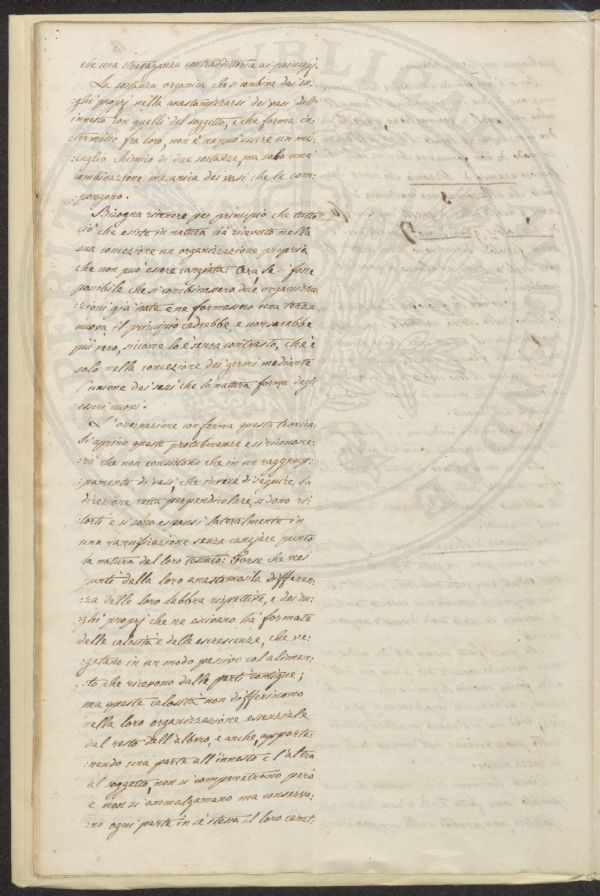 che una stravaganza contraddittoria ai principj.
La sostanza organica che si combina dai su:
:ghi proprj nella anastamizzarsi dei vasi dell'
innesto con quelli del soggetto, e che forma in:
:termedio fra loro, non è ne può essere un mi:
:scuglio chimico di due sostanze, ma solo una
combinazione mecanica dei vasi che le com:
:pongono.
Bisogna ritenere per principio che tutto
ciò che esiste in natura ha ricevuto nella
sua concezione un organizzazione propria
che non può essere cangiata. Ora se si fosse
possibile che si combinassero due organizza:
:zioni già nate e ne formassero una terza
nuova, il principio cadrebbe, e non sarebbe
più vero, siccome lo è senza contrasto, che è
solo nella concezione dei germi mediante
l'unione dei sessi che la natura forma degli
esseri nuovi.
L'osservazione conferma questa teorica.
Si aprino queste protuberanze e si riconosce:
:rà che non consistono che in un raggrup:
:pamento di vasi, che invece di seguire la
direzione retta perpendicolare, si sono ri:
:torti e si sono espansi lateralmente in
una ramificazione senza cangiare punto
la natura del loro tessuto. Forse che nei
punti della loro anastamosi la differen:
:za delle loro labbra rispettive, e dei su:
:ghi proprj che ne esivano ha formate
delle calosità e delle escrescenze, che ve:
:getano in un modo passivo col alimen:
:to che ricevono dalle parti contigue;
ma queste calosità non differiscono
nella loro organizzazione essenziale
dal resto dell'albero, e anche apparte:
:nendo una parte all'innesto e l'altra
al soggetto, non si compenetrano però
e non si ammalgamano ma conserva:
:no ogni parte in sè stessa il loro carat: